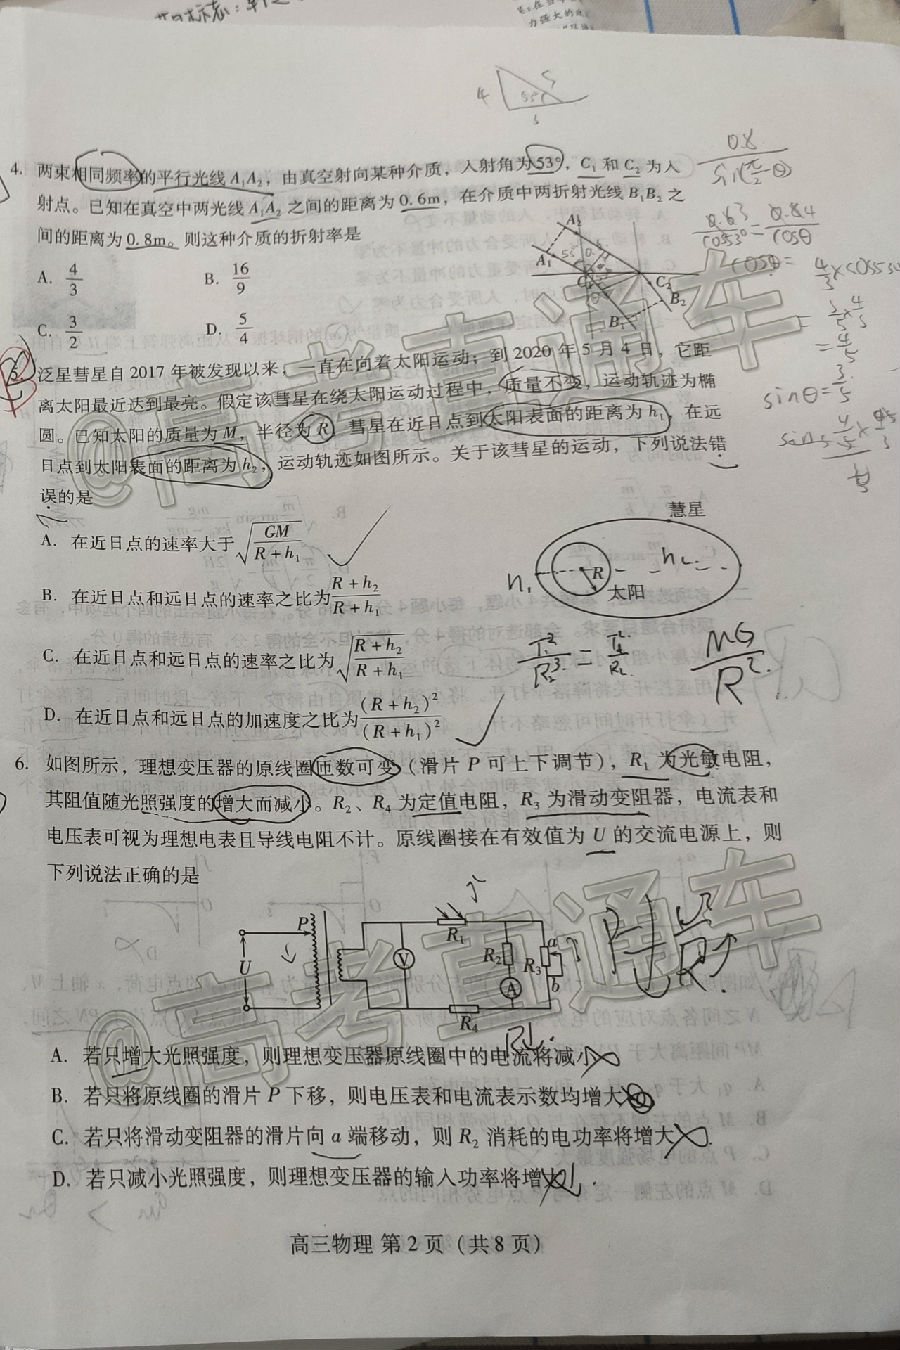 4. 两束相同频率的平行光线 A₁A₂，由真空射向某种介质，入射角为53°，C₁ 和 C₂ 为入
射点。已知在真空中两光线 A₁A₂ 之间的距离为 0.6m，在介质中两折射光线 B₁B₂ 之
间的距离为 0.8m。则这种介质的折射率是
A. 4/3 B. 16/9
C. 3/2 D. 5/4
A₂
A₁
C₂
B₂
B₁
5. 泛星彗星自 2017 年被发现以来，一直在向着太阳运动；到 2020 年 5 月 4 日，它距
离太阳最近达到最亮。假定该彗星在绕太阳运动过程中，质量不变，运动轨迹为椭
圆。已知太阳的质量为 M，半径为 R，彗星在近日点到太阳表面的距离为 h₁，在远
日点到太阳表面的距离为 h₂，运动轨迹如图所示。关于该彗星的运动，下列说法错
误的是
A. 在近日点的速率大于 √(GM/(R+h₁))
B. 在近日点和远日点的速率之比为 (R+h₂)/(R+h₁)
C. 在近日点和远日点的速率之比为 √((R+h₂)/(R+h₁))
D. 在近日点和远日点的加速度之比为 (R+h₂)²/(R+h₁)²
慧星
R
太阳
h₁
MG/R²
6. 如图所示，理想变压器的原线圈匝数可变（滑片 P 可上下调节），R₁ 为光敏电阻，
其阻值随光照强度的增大而减小。R₂、R₄ 为定值电阻，R₃ 为滑动变阻器，电流表和
电压表可视为理想电表且导线电阻不计。原线圈接在有效值为 U 的交流电源上，则
下列说法正确的是
P
U
V
R₁
R₂
R₃
a
b
A
R₄
A. 若只增大光照强度，则理想变压器原线圈中的电流将减小
B. 若只将原线圈的滑片 P 下移，则电压表和电流表示数均增大
C. 若只将滑动变阻器的滑片向 a 端移动，则 R₂ 消耗的电功率将增大
D. 若只减小光照强度，则理想变压器的输入功率将增大
高三物理 第 2 页（共 8 页）
@高考直通车
@高考直通车